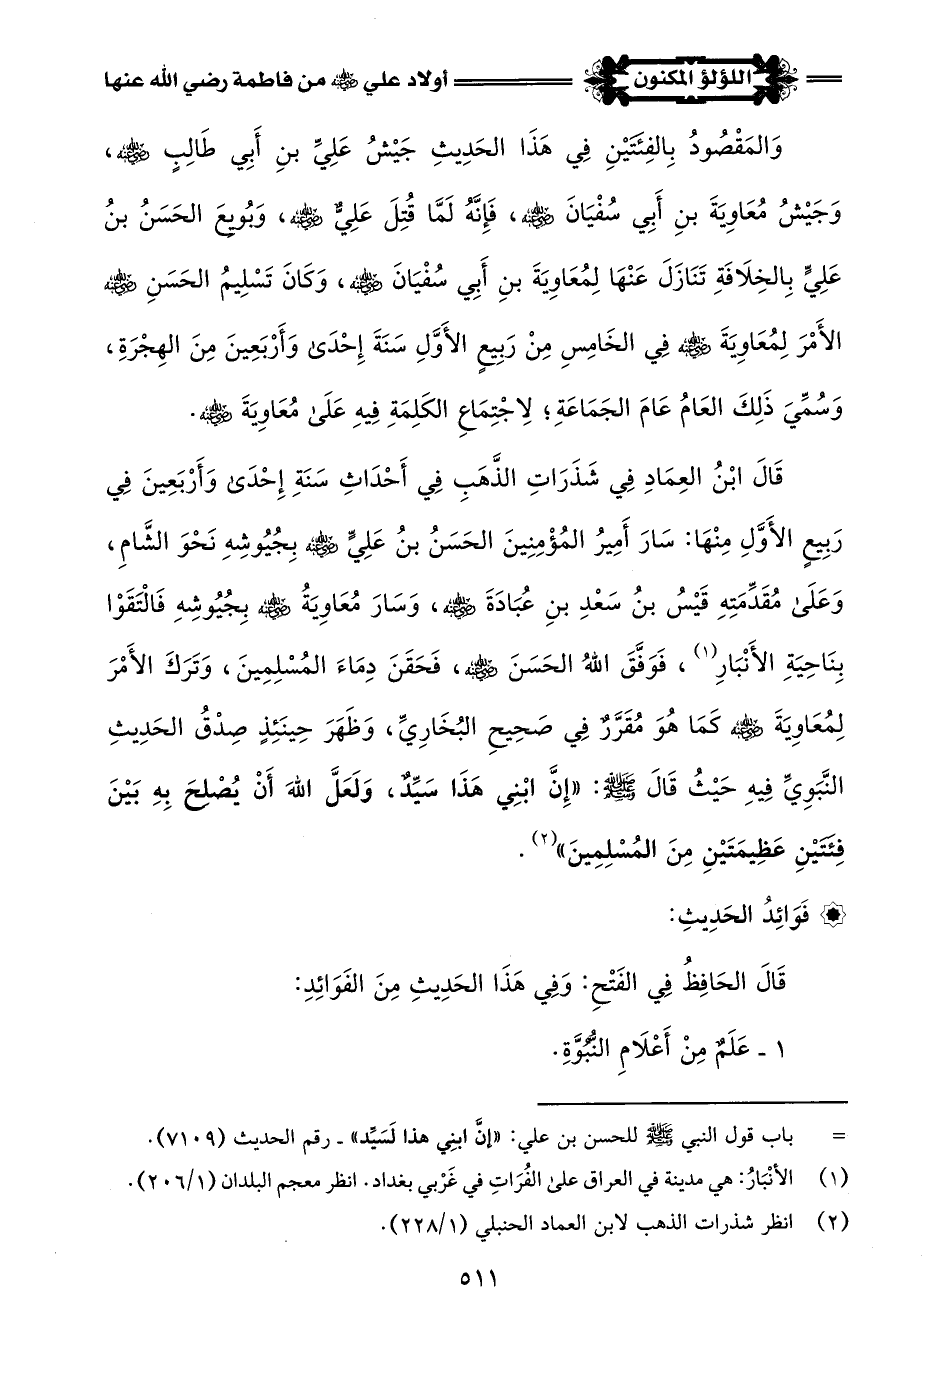 اللؤلؤ المكنون أولاد علي ﵁ من فاطمة رضي الله عنها
وَالمَقْصُودُ بِالفِئَتَيْنِ فِي هَذَا الحَدِيثِ جَيْشُ عَلِيِّ بنِ أَبِي طَالِبٍ ﵁،
وَجَيْشُ مُعَاوِيَةَ بنِ أَبِي سُفْيَانَ ﵁، فَإِنَّهُ لَمَّا قُتِلَ عَلِيٌّ ﵁، وَبُويِعَ الحَسَنُ بنُ
عَلِيٍّ بِالخِلَافَةِ تَنَازَلَ عَنْهَا لِمُعَاوِيَةَ بنِ أَبِي سُفْيَانَ ﵁، وَكَانَ تَسْلِيمُ الحَسَنِ ﵁
الأَمْرَ لِمُعَاوِيَةَ ﵁ فِي الخَامِسِ مِنْ رَبِيعٍ الأَوَّلِ سَنَةَ إِحْدَىٰ وَأَرْبَعِينَ مِنَ الهِجْرَةِ،
وَسُمِّيَ ذَلِكَ العَامُ عَامَ الجَمَاعَةِ؛ لِاجْتِمَاعِ الكَلِمَةِ فِيهِ عَلَىٰ مُعَاوِيَةَ ﵁.
قَالَ ابْنُ العِمَادِ فِي شَذَرَاتِ الذَّهَبِ فِي أَحْدَاثِ سَنَةِ إِحْدَىٰ وَأَرْبَعِينَ فِي
رَبِيعٍ الأَوَّلِ مِنْهَا: سَارَ أَمِيرُ المُؤْمِنِينَ الحَسَنُ بنُ عَلِيٍّ ﵁ بِجُيُوشِهِ نَحْوَ الشَّامِ،
وَعَلَىٰ مُقَدِّمَتِهِ قَيْسُ بنُ سَعْدِ بنِ عُبَادَةَ ﵁، وَسَارَ مُعَاوِيَةُ ﵁ بِجُيُوشِهِ فَالْتَقَوْا
بِنَاحِيَةِ الأَنْبَارِ(١)، فَوَفَّقَ اللهُ الحَسَنَ ﵁، فَحَقَنَ دِمَاءَ المُسْلِمِينَ، وَتَرَكَ الأَمْرَ
لِمُعَاوِيَةَ ﵁ كَمَا هُوَ مُقَرَّرٌ فِي صَحِيحِ البُخَارِيِّ، وَظَهَرَ حِينَئِذٍ صِدْقُ الحَدِيثِ
النَّبَوِيِّ فِيهِ حَيْثُ قَالَ ﷺ: «إِنَّ ابْنِي هَذَا سَيِّدٌ، وَلَعَلَّ اللهَ أَنْ يُصْلِحَ بِهِ بَيْنَ
فِئَتَيْنِ عَظِيمَتَيْنِ مِنَ المُسْلِمِينَ»(٢).
فَوَائِدُ الحَدِيثِ:
قَالَ الحَافِظُ فِي الفَتْحِ: وَفِي هَذَا الحَدِيثِ مِنَ الفَوَائِدِ:
١ - عَلَمٌ مِنْ أَعْلَامِ النُّبُوَّةِ.
= باب قول النبي ﷺ للحسن بن علي: «إنَّ ابني هذا لَسَيِّد» - رقم الحديث (٧١٠٩).
(١) الأَنْبَارُ: هي مدينة في العراق علىٰ الفُرَاتِ في غَرْبي بغداد. انظر معجم البلدان (٢٠٦/١).
(٢) انظر شذرات الذهب لابن العماد الحنبلي (٢٢٨/١).
٥١١